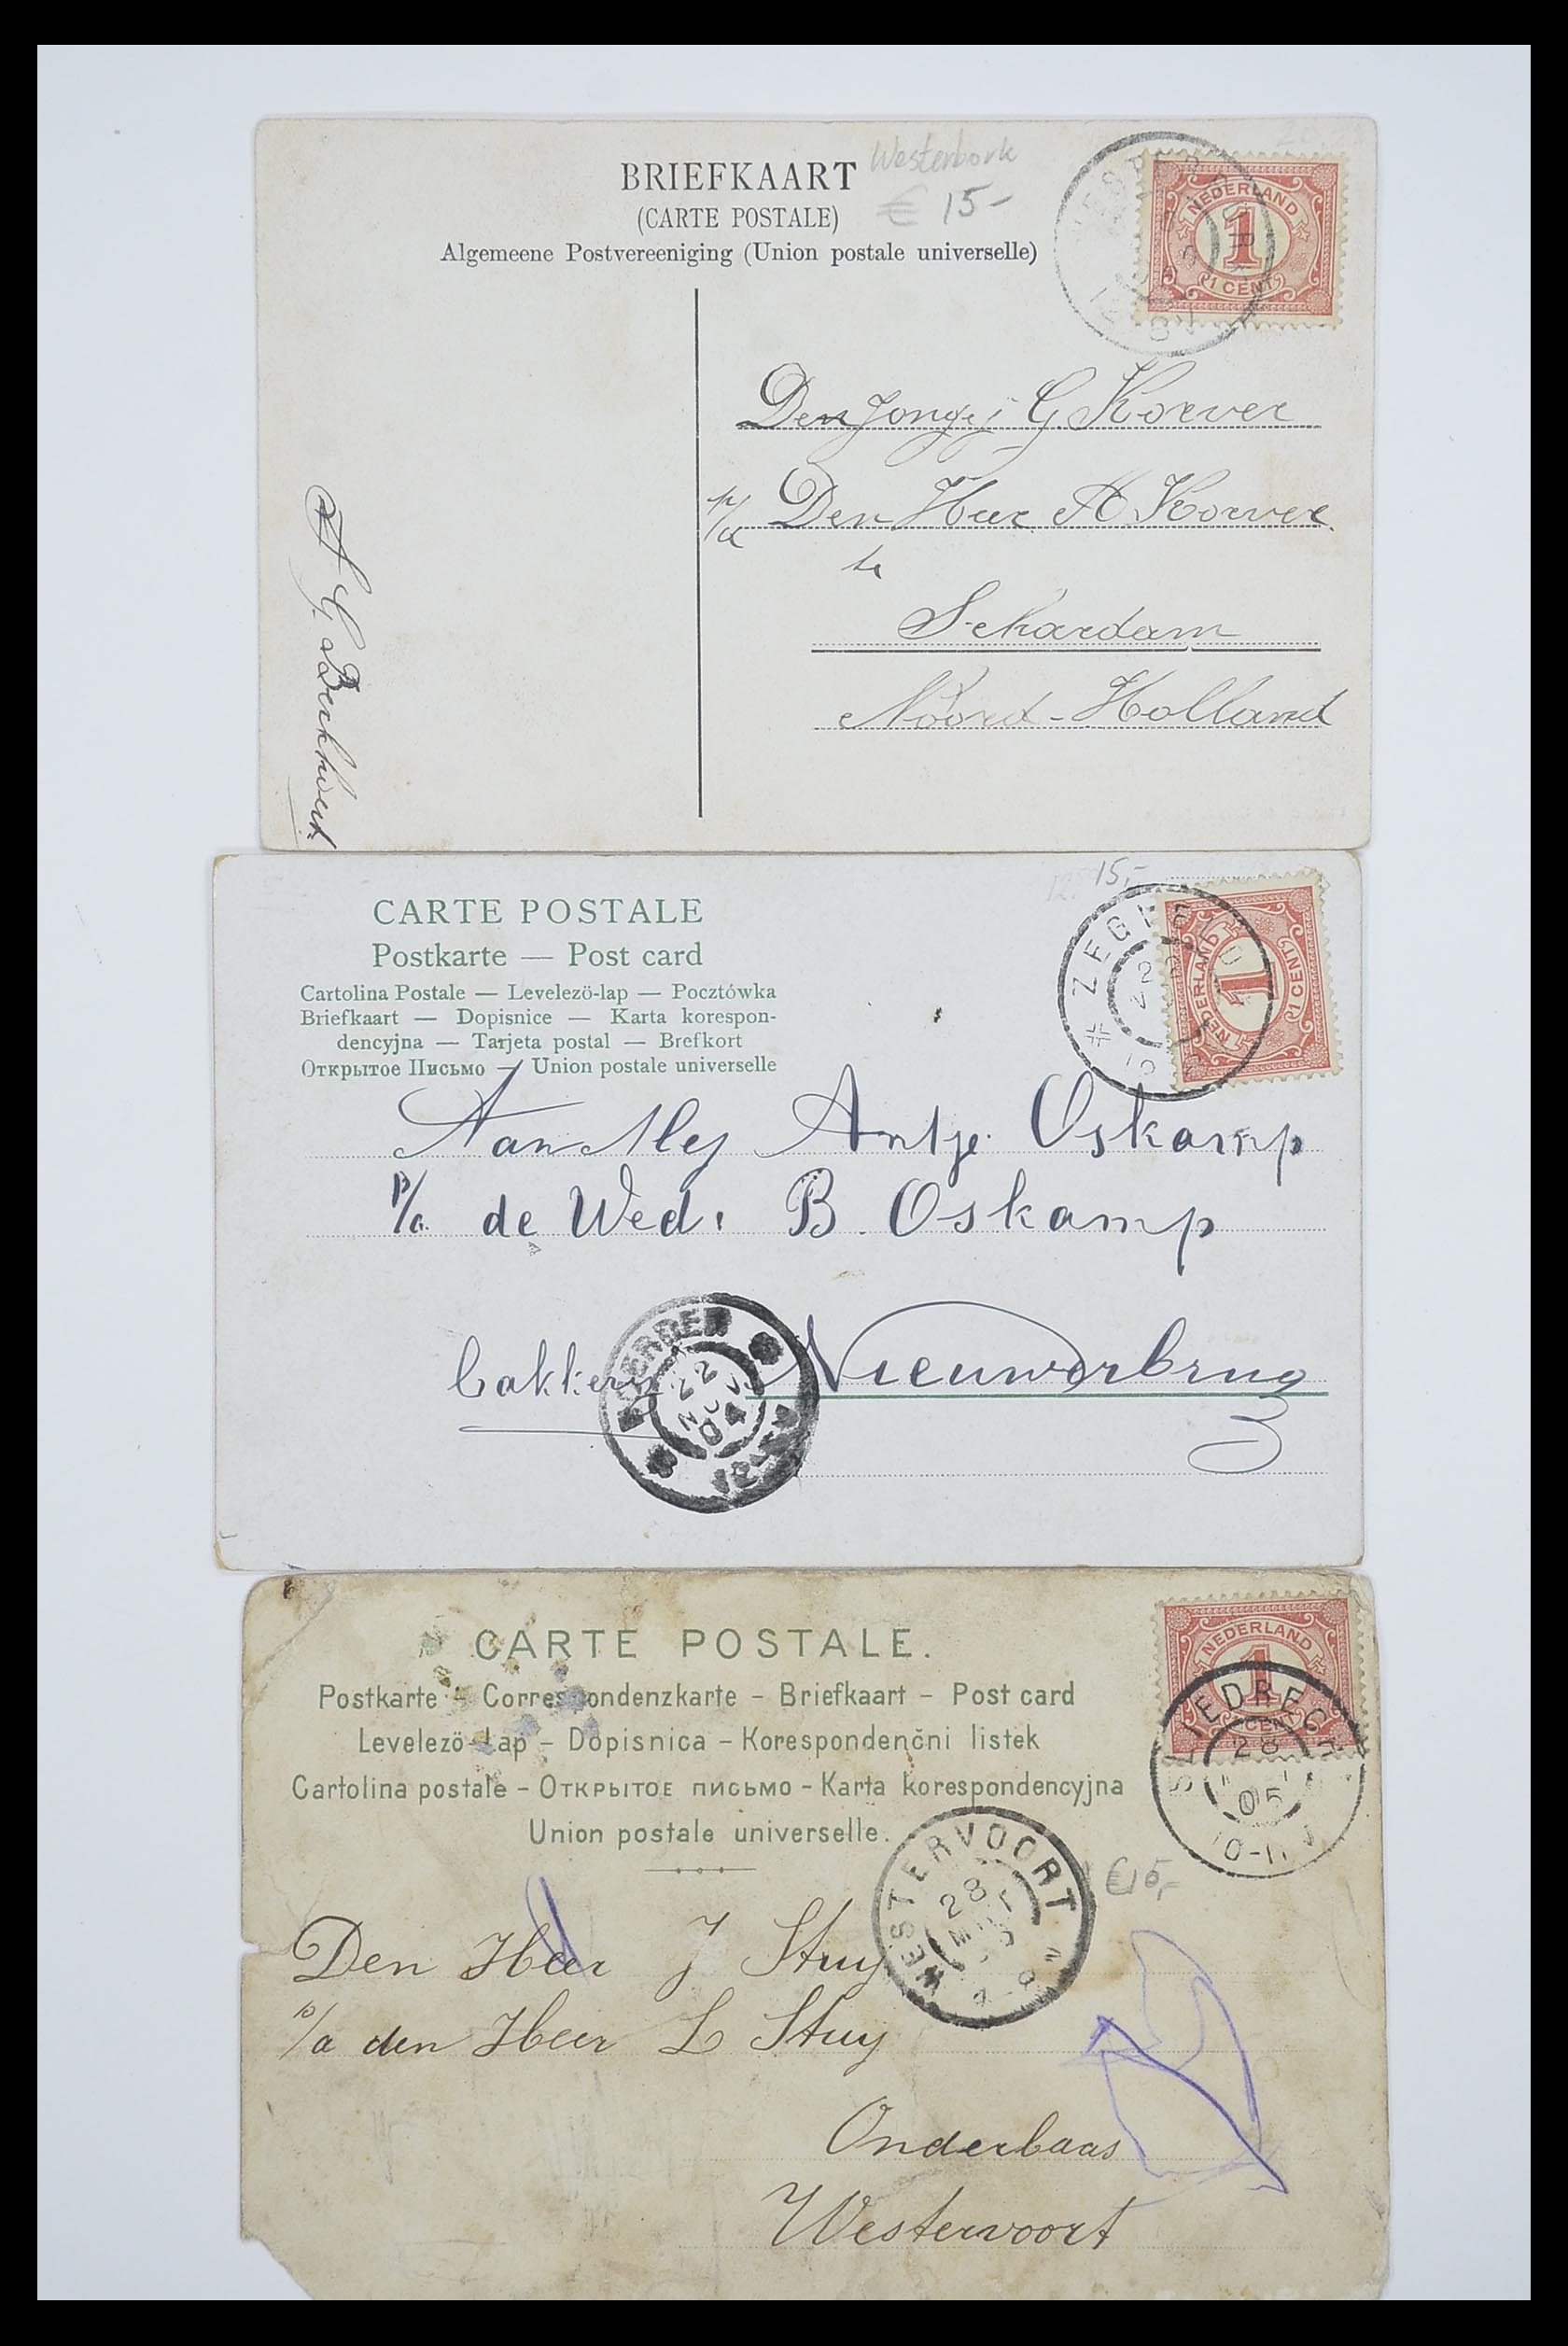 BRIEFKAART
Westerbork
(CARTE POSTALE)
€ 15-
Algemeene Postvereeniging (Union postale universelle)
NEDERLAND
1
1 CENT
Den Jongej G. Korver
p/a Den Heer A Korver
te
Schardam
Noord-Holland
CARTE POSTALE
15,-
Postkarte — Post card
Cartolina Postale — Levelezö-lap — Pocztówka
Briefkaart — Dopisnice — Karta korespon-
dencyjna — Tarjeta postal — Brefkort
Открытое Письмо — Union postale universelle
NEDERLAND
1
1 CENT
Aan Mej Antje Oskamp
p/a. de Wed. B. Oskamp
bakkerij Nieuwerbrug
22
NOV
04
CARTE POSTALE.
Postkarte - Correspondenzkarte - Briefkaart - Post card
Levelezö-Lap - Dopisnica - Korespondenčni listek
Cartolina postale - Открытое письмо - Karta korespondencyjna
Union postale universelle.
NEDERLAND
1
CENT
SLIEDRECHT
28
05
10-11V
WESTERVOORT
28
MRT
€15,-
Den Heer J Stuy
p/a den Heer L Stuy
Onderbaas
Westervoort